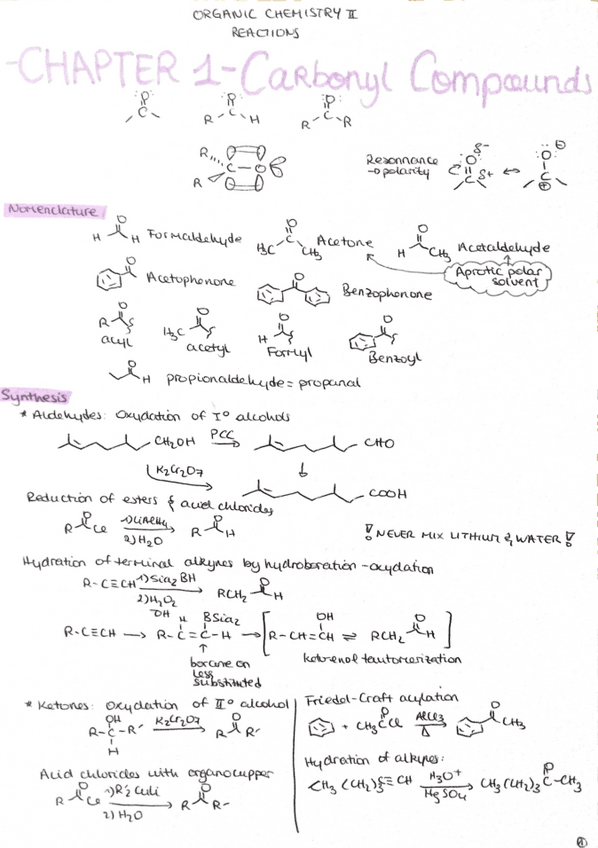 ORGANIC CHEMISTRY II
REACTIONS
-CHAPTER 1-Carbonyl Compounds
R H R R
R
R C O
Resonnance
→polarity
δ-
δ+
Nomenclature
H H Formaldehyde H₃C CH₃ Acetone H CH₃ Acetaldehyde
Aprotic polar
solvent
Acetophenone Benzophenone
R H₃C H
acyl acetyl Formyl Benzoyl
H propionaldehyde = propanal
Synthesis
* Aldehydes: Oxydation of I° alcohols
CH₂OH PCC CHO
K₂Cr₂O₇
COOH
Reduction of esters & acid chlorides
R Cl 1) LiAlH₄ R H
2) H₂O
! NEVER MIX LITHIUM & WATER !
Hydration of terminal alkynes by hydroboration-oxydation
R-C≡CH 1) Sia₂BH RCH₂ H
2) H₂O₂
OH H BSia₂ OH O
R-C≡CH → R-C=C-H → [R-CH=CH ⇌ RCH₂ H]
borane on
less
substituted
keto-enol tautomerization
* Ketones: Oxydation of II° alcohol
OH
R-C-R' K₂Cr₂O₇ R R'
H
Acid chlorides with organocupper
R Cl 1) R'₂CuLi R R'
2) H₂O
Friedel-Craft acylation
+ CH₃ Cl AlCl₃ CH₃
Δ
Hydration of alkynes:
CH₃(CH₂)₃≡CH H₃O⁺ CH₃(CH₂)₃ C-CH₃
HgSO₄
1